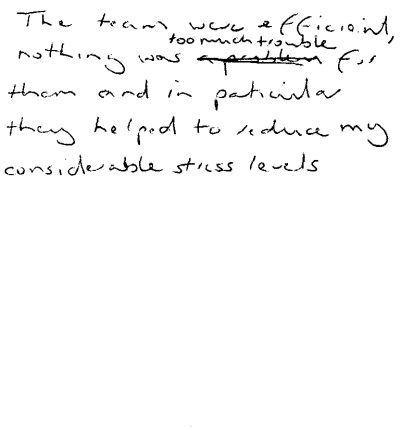 The team were efficient,
nothing was too much trouble for
them and in paticular
they helped to reduce my
considerable stress levels